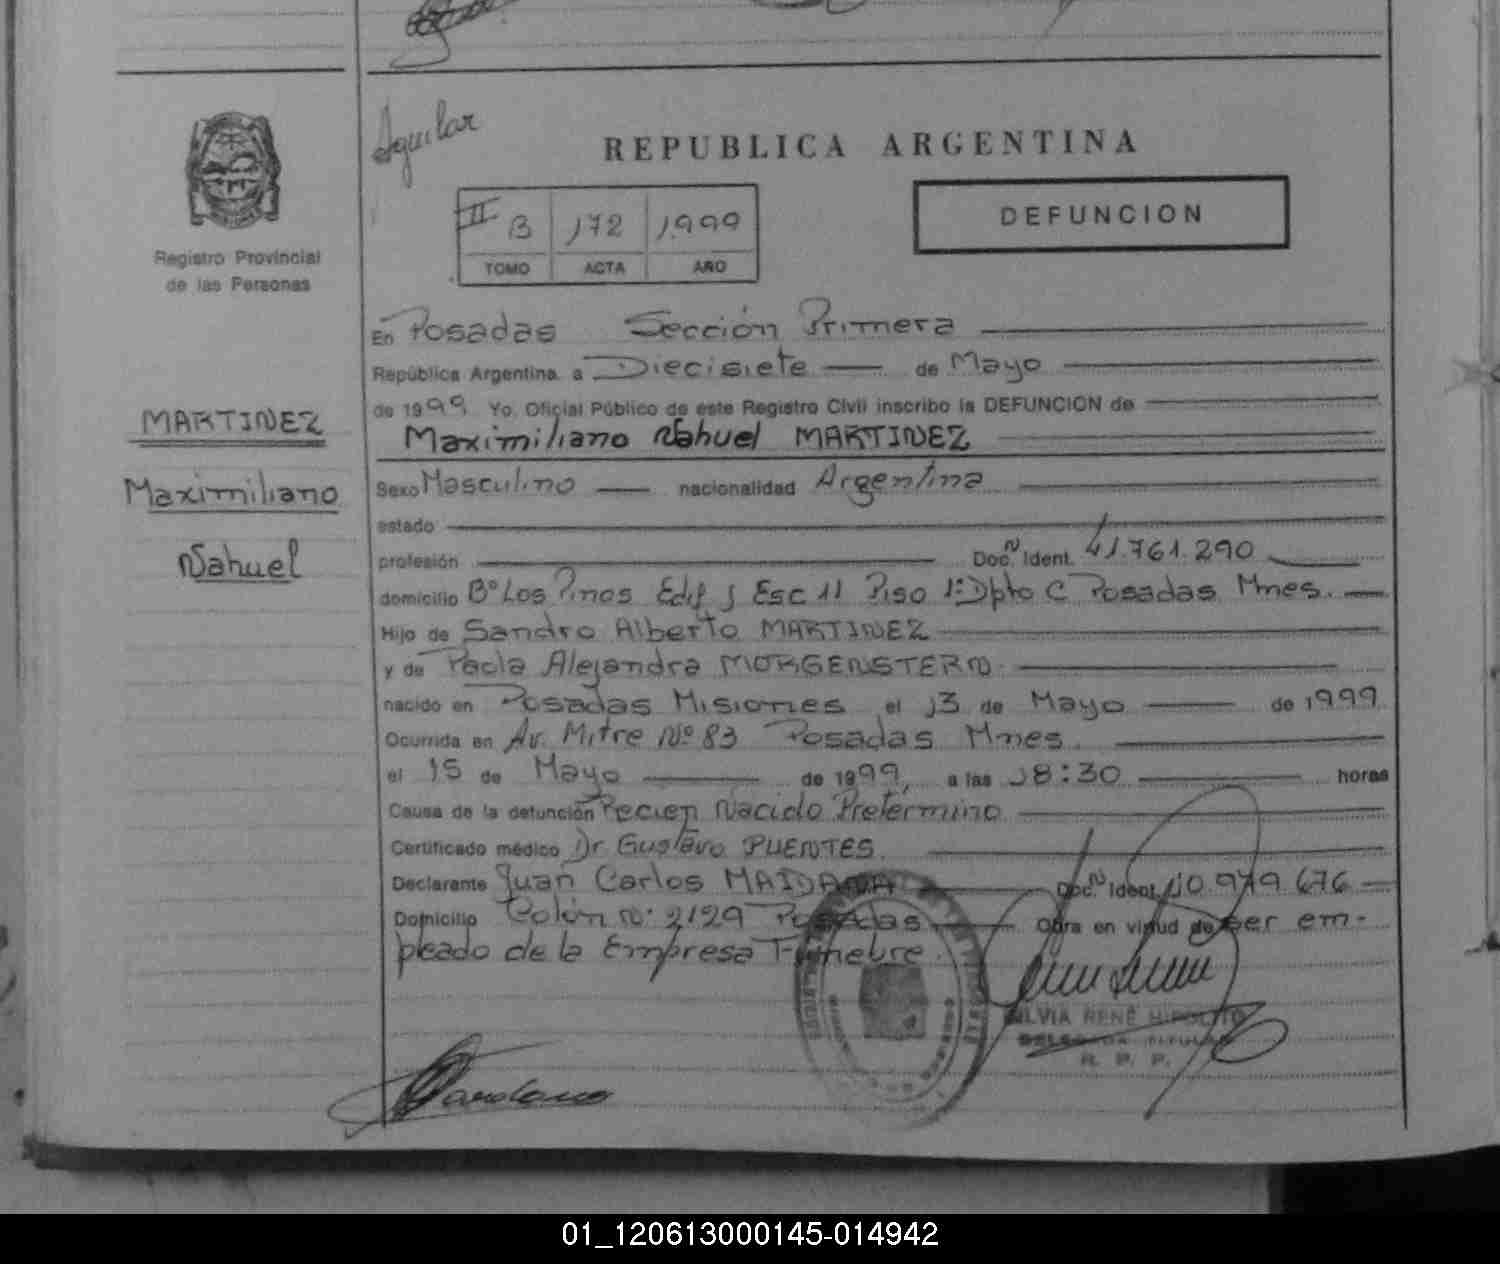 Aguilar
REPUBLICA ARGENTINA
II B 172 1999
TOMO ACTA AÑO
DEFUNCION
Registro Provincial
de las Personas
MARTINEZ
Maximiliano
Nahuel
En Posadas Sección Primera
República Argentina, a Diecisiete de Mayo
de 1999 Yo, Oficial Público de este Registro Civil inscribo la DEFUNCION de
Maximiliano Nahuel MARTINEZ
Sexo Masculino nacionalidad Argentina
estado
profesión Doc. N Ident. 41.761.290
domicilio Bº Los Pinos Edif J Esc 11 Piso 1º Dpto C Posadas Mnes.
Hijo de Sandro Alberto MARTINEZ
y de Paola Alejandra MORGENSTERN
nacido en Posadas Misiones el 13 de Mayo de 1999
Ocurrida en Av. Mitre Nº 83 Posadas Mnes.
el 15 de Mayo de 1999, a las 18:30 horas
Causa de la defunción Recien Nacido Pretermino
Certificado médico Dr. Gustavo PUENTES.
Declarante Juan Carlos MAIDANA Doc. N Ident. 10.979.676
Domicilio Colón Nº 2129 Posadas Obra en virtud de ser em-
pleado de la Empresa Fúnebre.
SILVIA RENÉ HIPOLITO
DELEGADA TITULAR
R. P. P.
01_120613000145-014942